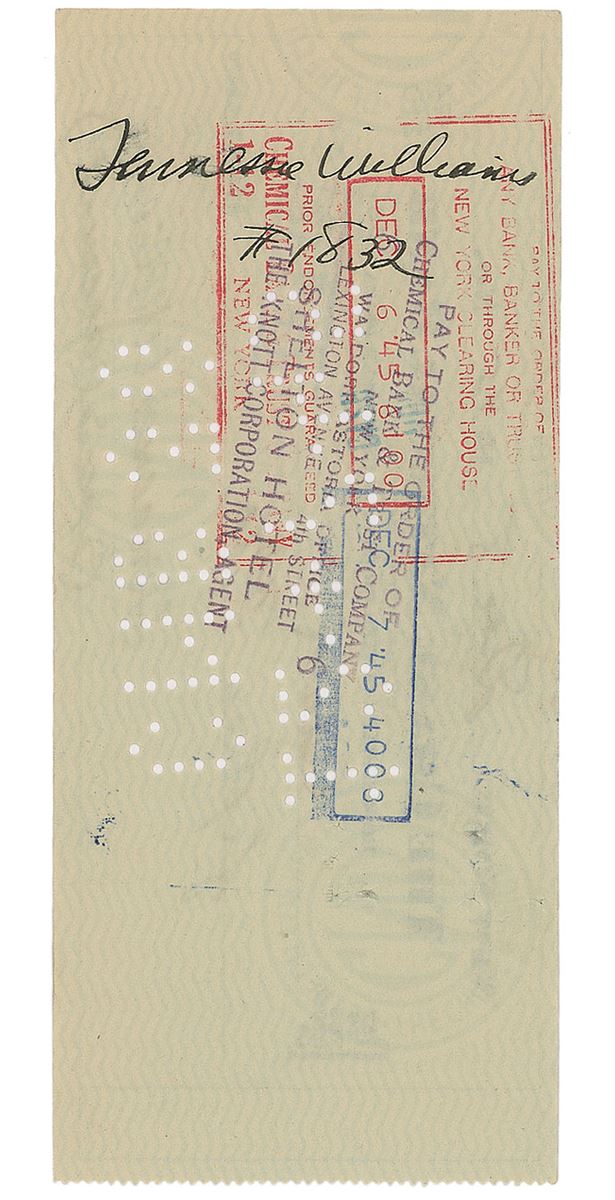 Tennessee Williams
#1832
PAY TO THE ORDER OF
ANY BANK, BANKER OR
OR THROUGH THE
NEW YORK CLEARING HOUSE
DEC 6 '45 8 00
PRIOR ENDORSEMENTS GUARANTEED
CHEMICAL
NEW YORK 2
PAY TO THE ORDER OF
CHEMICAL BANK & TRUST COMPANY
NEW YORK
WALDORF ASTORIA OFFICE
LEXINGTON AVE
4th STREET
SHELTON HOTEL
THE KNOTT CORPORATION, AGENT
6
DEC 7 '45 4008